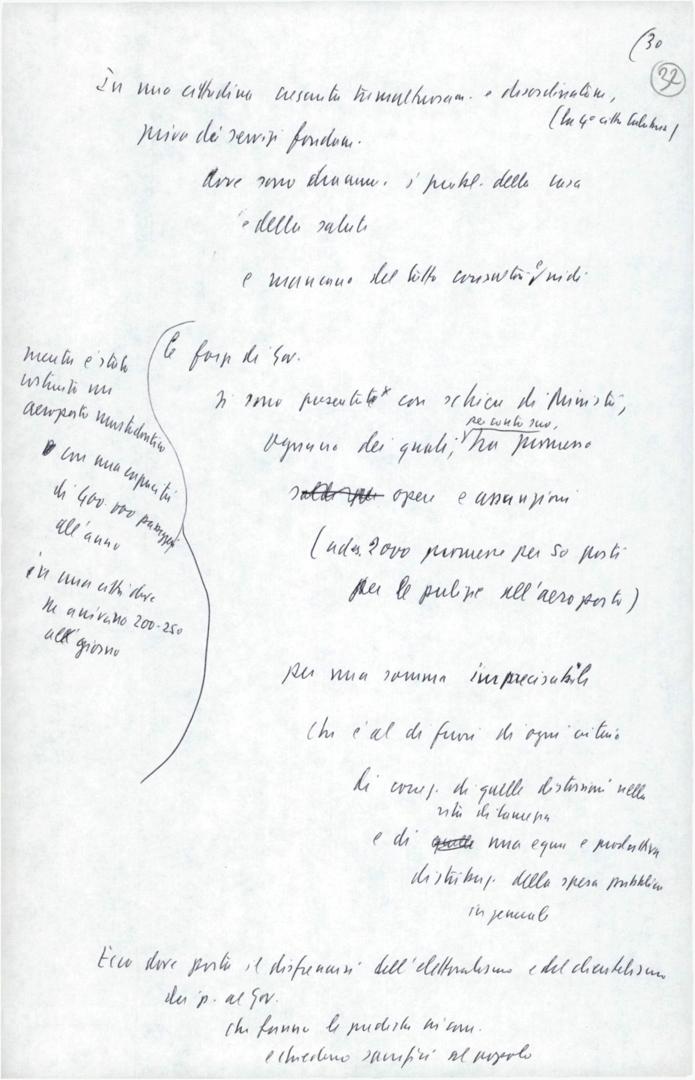 (30
32
In una cittadina cresciuta tumultuosam. e disordinatam.,
(la 4ª città calabrese)
priva dei servizi fondam.
dove sono dramm. i probl. della casa
e della salute
e mancano del tutto consultori e nidi
le forze di Gov.
si sono presentate x con schiere di Ministri,
ognuno dei quali, per conto suo, ha promesso
opere e assunzioni
(ad es. 2000 promesse per 50 posti
per le pulizie all'aeroporto)
per una somma imprecisabile
che è al di fuori di ogni criterio
di correz. di quelle distorsioni nella
e di una equa e produttiva
distribuz. della spesa pubblica
in generale
mentre è stato
costruito un
aeroporto mastodontico
con una capacità
di 400.000 passeggeri
all'anno
in una città dove
ne arrivano 200-250
al giorno
Ecco dove porta il disfrenarsi dell'elettoralismo e del clientelismo
dei p. al Gov.
che fanno le prediche
e chiedono sacrifici al popolo